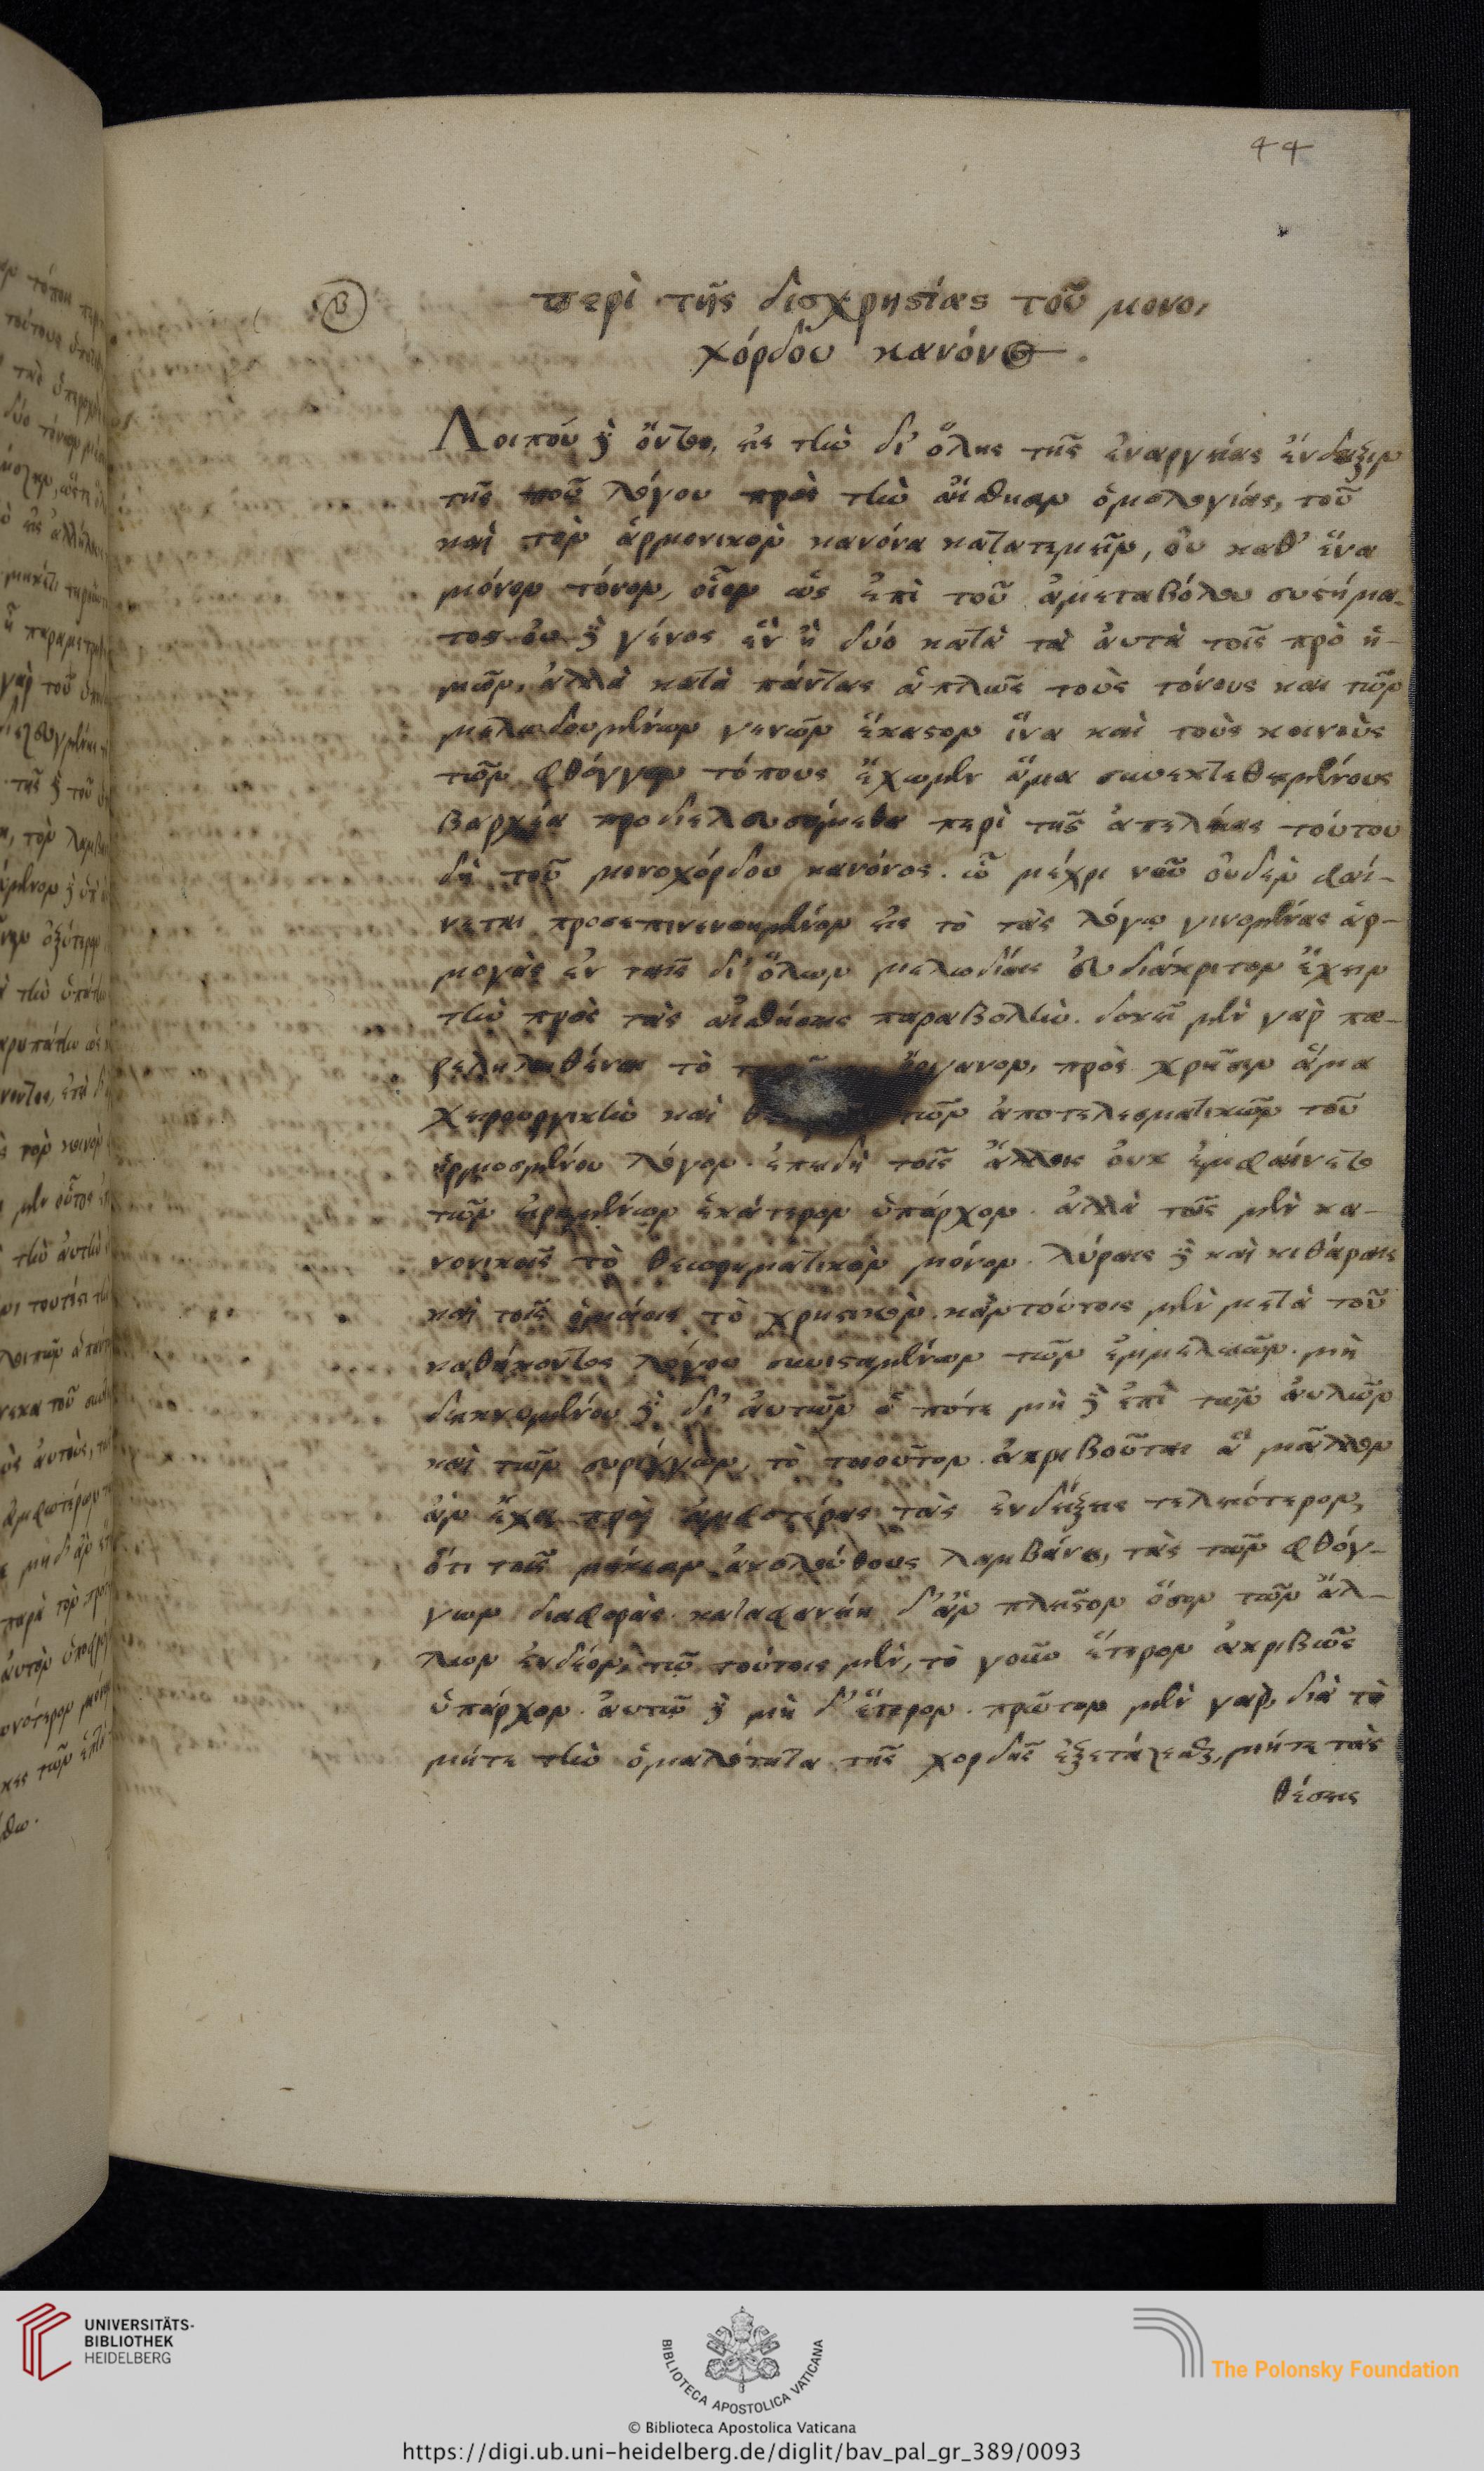 44
B
περὶ τῆς δισχρησίας τοῦ μονο,
χόρδου κανόνος.
Λοιποῦ δὲ ὄντος, εἰς τὴν δι' ὅλης τῆς ἐναργείας ἔνδειξιν
τῆς τοῦ λόγου πρὸς τὴν αἴσθησιν ὁμολογίας, τοῦ
καὶ τὸν ἁρμονικὸν κανόνα κατατεμεῖν, οὐ καθ' ἕνα
μόνον τόνον, οἷον ὡς ἐπὶ τοῦ ἀμεταβόλου συστήμα-
τος δὲ γένος ἓν ἢ δύο κατὰ τὰ αὐτὰ τοῖς πρὸ ἡ-
μῶν, ἀλλὰ κατὰ πάντας ἁπλῶς τοὺς τόνους και τῶν
μελωδουμένων γενῶν ἕκαστον ἵνα καὶ τοὺς κοινοὺς
τῶν φθόγγων τόπους ἔχωμεν ἅμα συνεκτεθειμένους
βαρχέα προδιελευσόμεθα περὶ τῆς ἀτελείας τούτου
δὴ τοῦ μονοχόρδου κανόνος. ᾧ μέχρι νῦν οὐδὲν φαί-
νεται προσεπινενοημένον εἰς τὸ τὰς λόγῳ γινομένας ἁρ-
μογὰς ἐν ταῖς δι' ὅλων μελωδίαις εὐδιάκριτον ἔχειν
τὴν πρὸς τὰς αἰσθήσεις παραβολήν. δοκεῖ μὲν γὰρ πα-
ρεληλυθέναι τὸ ὄργανον, πρὸς χρῆσιν ἅμα
χειρουργικὴν καὶ τῶν ἀποτελεσματικῶν τοῦ
ἡρμοσμένου λόγον. ἐπειδὴ τοῖς ἄλλοις οὐκ ἐμφαίνετο
τῶν εἰρημένων ἑκάτερον ὑπάρχον. ἀλλὰ τοῖς μὲν κα-
νονικοῖς τὸ θεωρηματικὸν μόνον. λύραις δὲ καὶ κιθάραις
καὶ τοῖς ὁμοίοις τὸ χρηστικὸν. κἀν τούτοις μὲν μετὰ τοῦ
καθήκοντος λόγου συνισταμένων τῶν ἐμμελειῶν. μὴ
δεικνυμένου δὲ δι' αὐτῶν ὁπότε μὴ δὲ ἐπὶ τῶν αὐλῶν
καὶ τῶν συρίγγων, τὸ τοιοῦτον ἀκριβοῦται ἃ μᾶλλον
ἂν ἔχοι πρὸς ἀμφοτέρας τὰς ἐνδείξεις τελειότερον,
ὅτι τοῖς μήκεσιν ἀκολούθους λαμβάνει, τὰς τῶν φθόγ-
γων διαφορὰς. καταφανείη δ' ἂν πλεῖστον ὅσον τῶν ἄλ-
λων ἐνδέον, τῷ τούτοις μὲν, τὸ γοῦν ἕτερον ἀκριβῶς
ὑπάρχον. αὐτῷ δὲ μὴ δ' ἕτερον. πρῶτον μὲν γὰρ, διὰ τὸ
μήτε τὴν ὁμαλότητα τῆς χορδῆς ἐξετάζεσθαι, μήτε τὰς
θέσεις
UNIVERSITÄTS-
BIBLIOTHEK
HEIDELBERG
BIBLIOTECA APOSTOLICA VATICANA
The Polonsky Foundation
© Biblioteca Apostolica Vaticana
https://digi.ub.uni-heidelberg.de/diglit/bav_pal_gr_389/0093